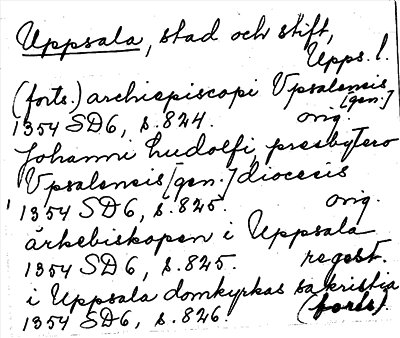 Uppsala, stad och stift,
Upps. l.
(forts.) archiepiscopi Upsalensis
[gen.]
1354 SD6, s. 824. orig.
Johanni Ludolfi, presbytero
Upsalensis [gen.] diocesis
1354 SD6, s. 825. orig.
ärkebiskopen i Uppsala
1354 SD6, s. 825. regest.
i Uppsala domkyrkas sakristia
1354 SD6, s. 826. (forts).